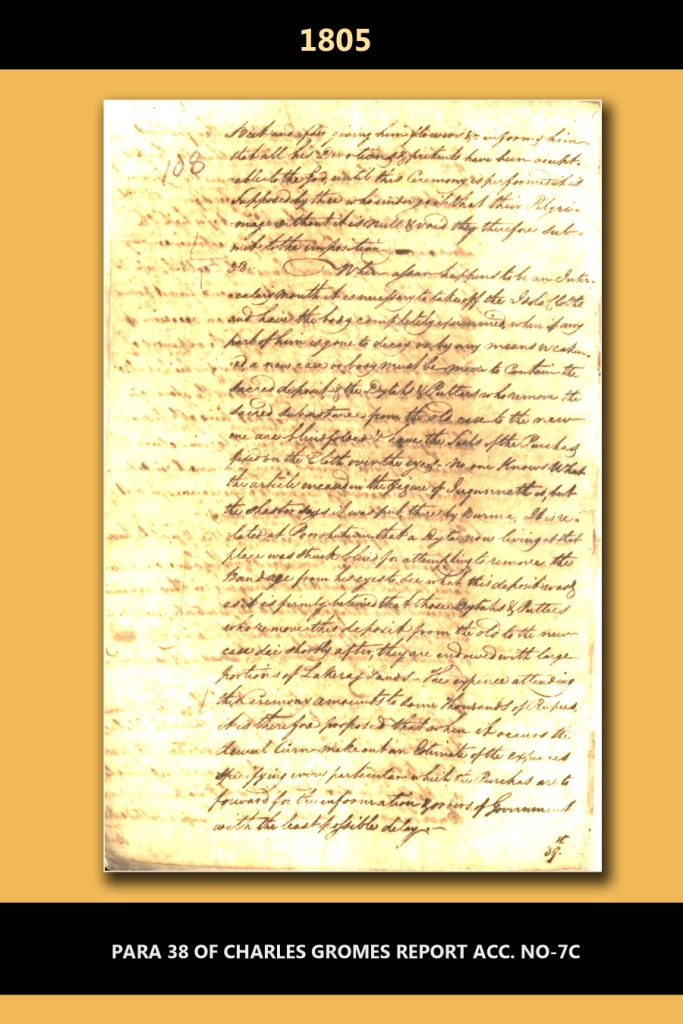 1805
108
and after giving him flowers &c informs him
that all his Devotions & pretents have been accept-
able to the God, until this Ceremony is performed it is
supposed by those who undergo it that their Pilgri-
mage without it is null & void they therefore sub-
mit to the imposition
38. When a year happens to be an Inter-
calary month it is necessary to take off the Idols Cloths
and have the body completely examined, when if any
part of him is gone to decay or by any means weaken-
ed, a new case or body must be made to Contain the
sacred deposit, & the Dytahs & Putties who remove the
sacred substance from the old case to the new
one are blindfolded & have the Seals of the Purchas
fixed on the Cloth over the eyes. No one Knows What
the article incased in the figure of Juggurnnath is, but
the shaster says it was put there by Burma. It is re-
lated at that a Dyta now living at that
place was struck blind for attempting to remove the
Bandage from his eyes to see what this deposit was, &
as it is firmly believed that those Dytahs & Putties
who remove this deposit from the old to the new
case die shortly after, they are endowed with large
portions of Lakeraj Lands. The expence attending
this Ceremony amounts to some thousands of Rupees,
it is therefore proposed that when it occurs the
dewul make out an Estimate of the expences
specifying every particular which the Purchas are to
forward for the information & orders of Government
with the least possible delay.
39.
PARA 38 OF CHARLES GROMES REPORT ACC. NO-7C